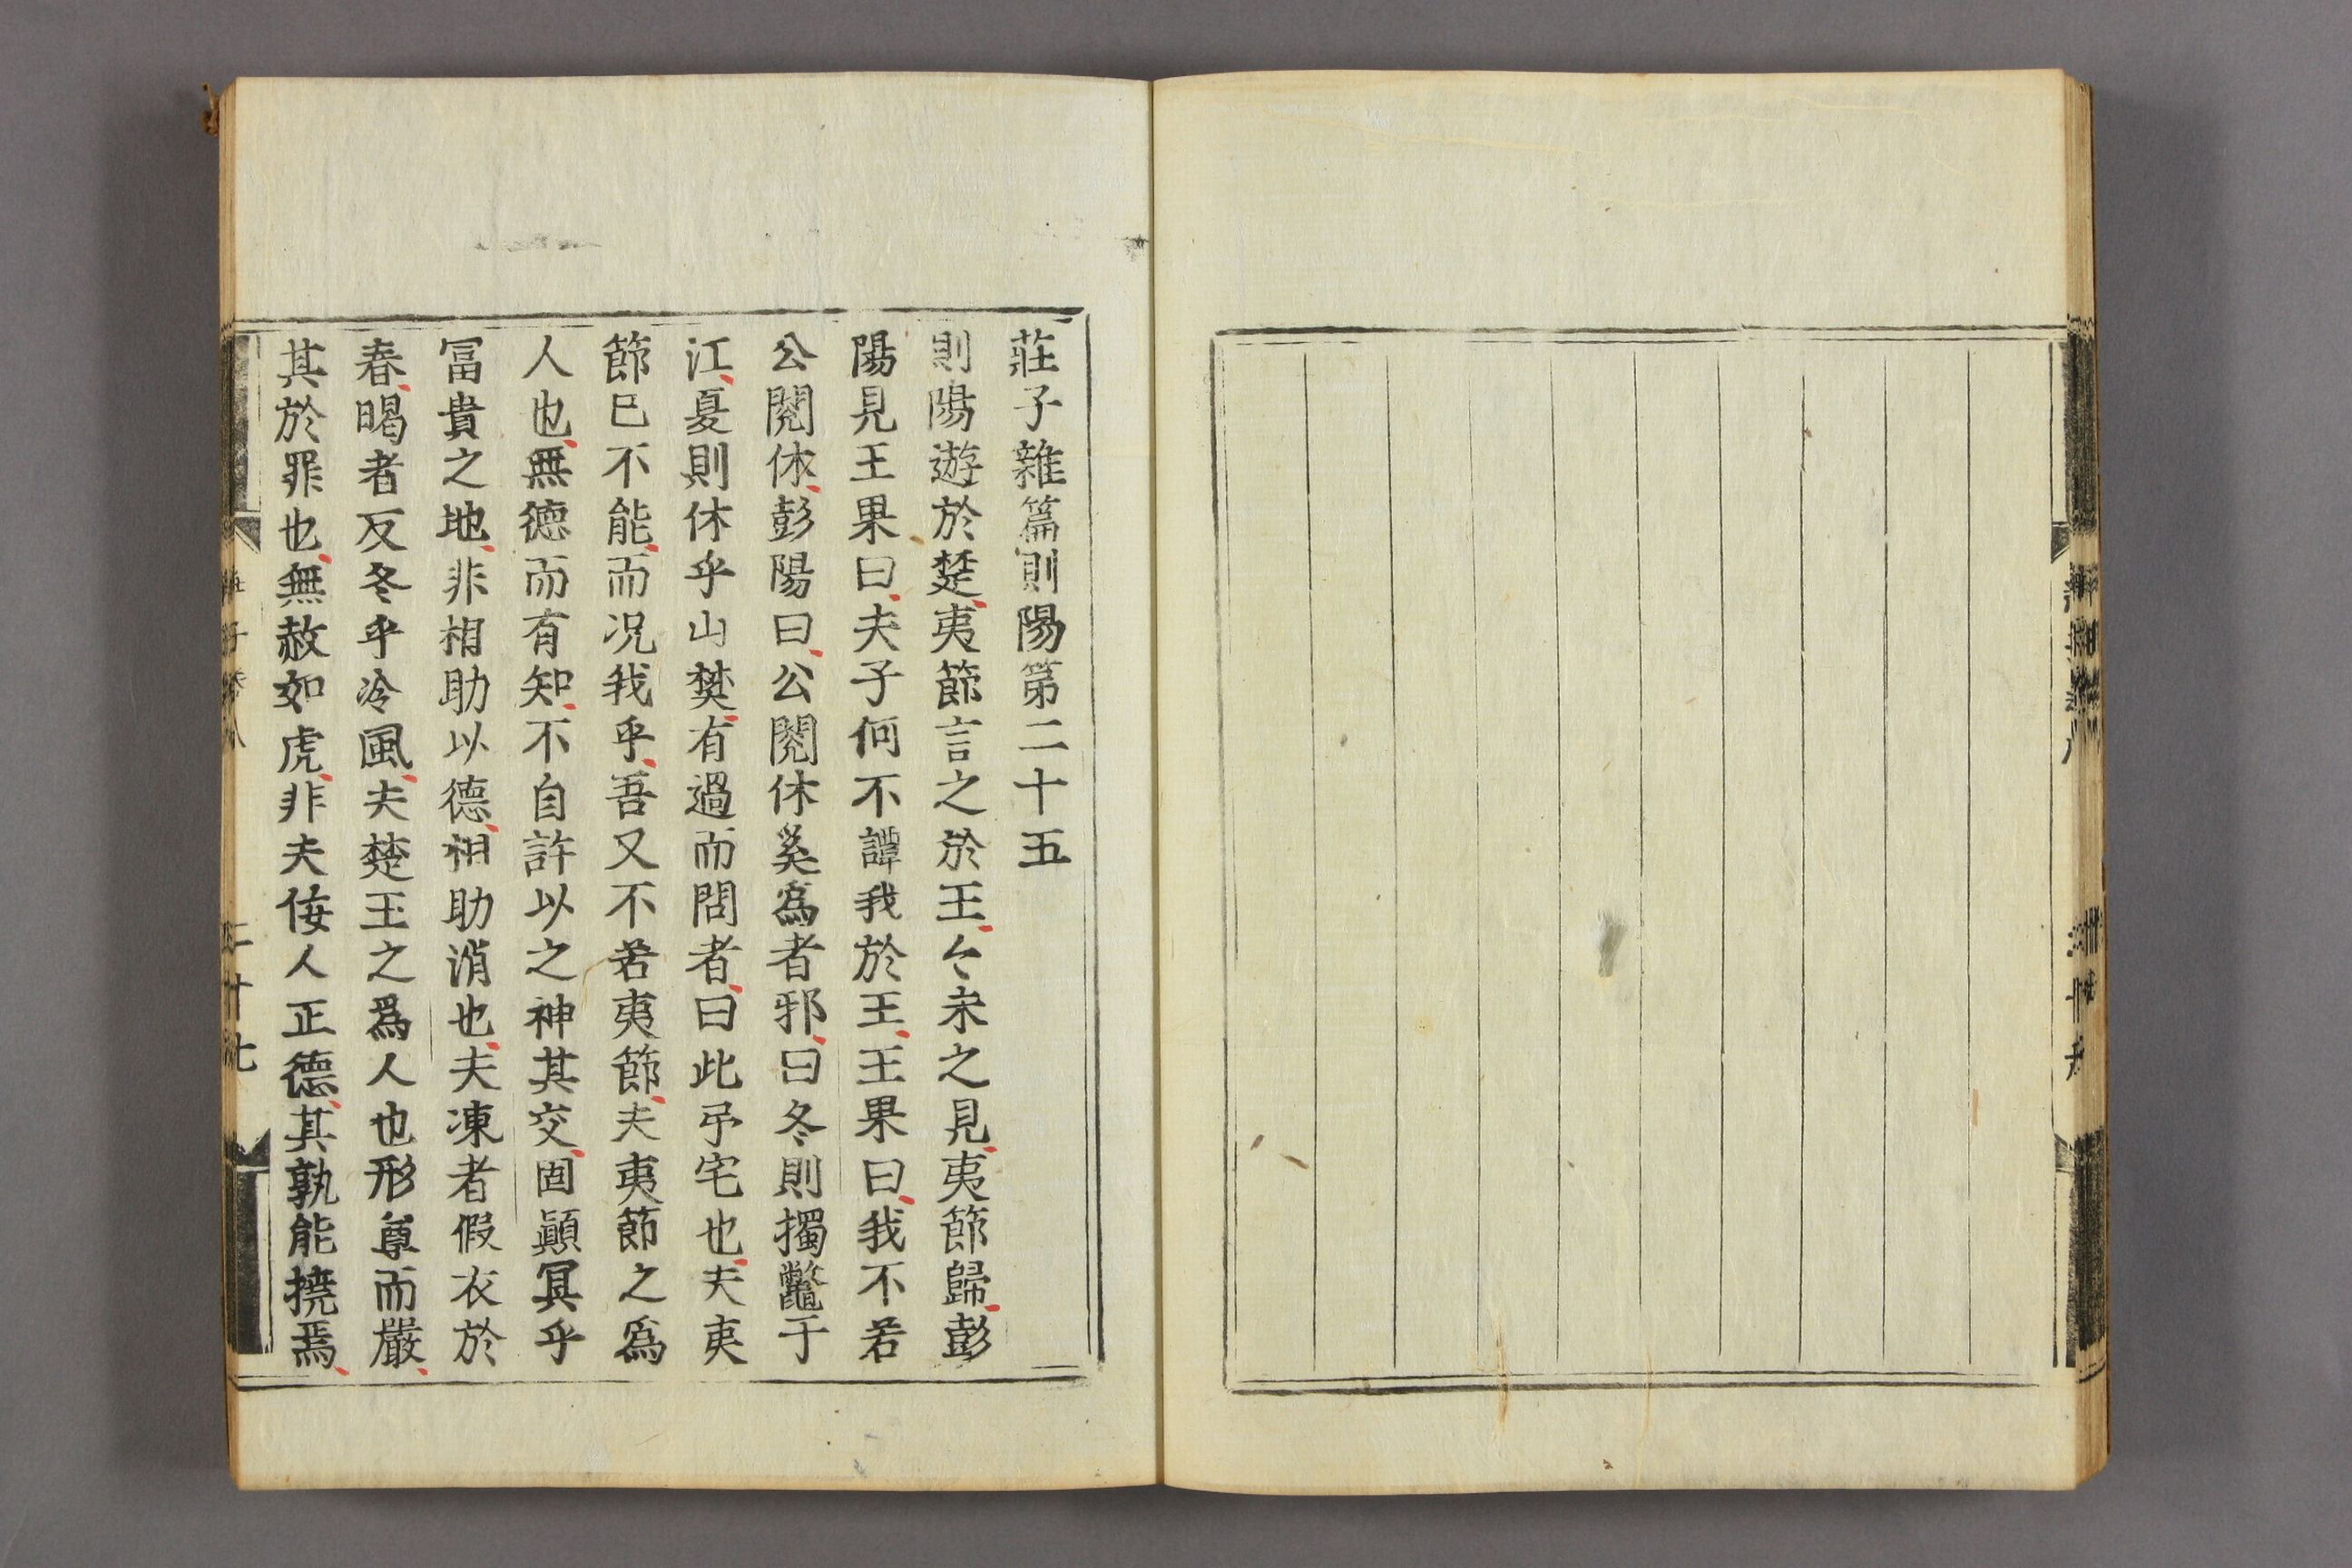 莊子雜篇則陽第二十五
則陽遊於楚夷節言之於王々未之見夷節歸彭
陽見王果曰夫子何不譚我於王王果曰我不若
公閱休彭陽曰公閱休奚為者邪曰冬則擉鼈于
江夏則休乎山樊有過而問者曰此予宅也夫夷
節已不能而况我乎吾又不若夷節夫夷節之為
人也無德而有知不自許以之神其交固顛冥乎
冨貴之地非相助以德相助消也夫凍者假衣於
春暍者反冬乎冷風夫楚王之為人也形尊而嚴
其於罪也無赦如虎非夫佞人正德其孰能撓焉
莊子卷八
二十七